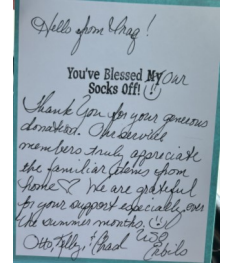 Hello from Iraq!
You've Blessed My Our
Socks Off!
Thank You for your generous
donation. Our service
members truly appreciate
the familiar items from
home ♡ We are grateful
for your support especially over
the summer months.